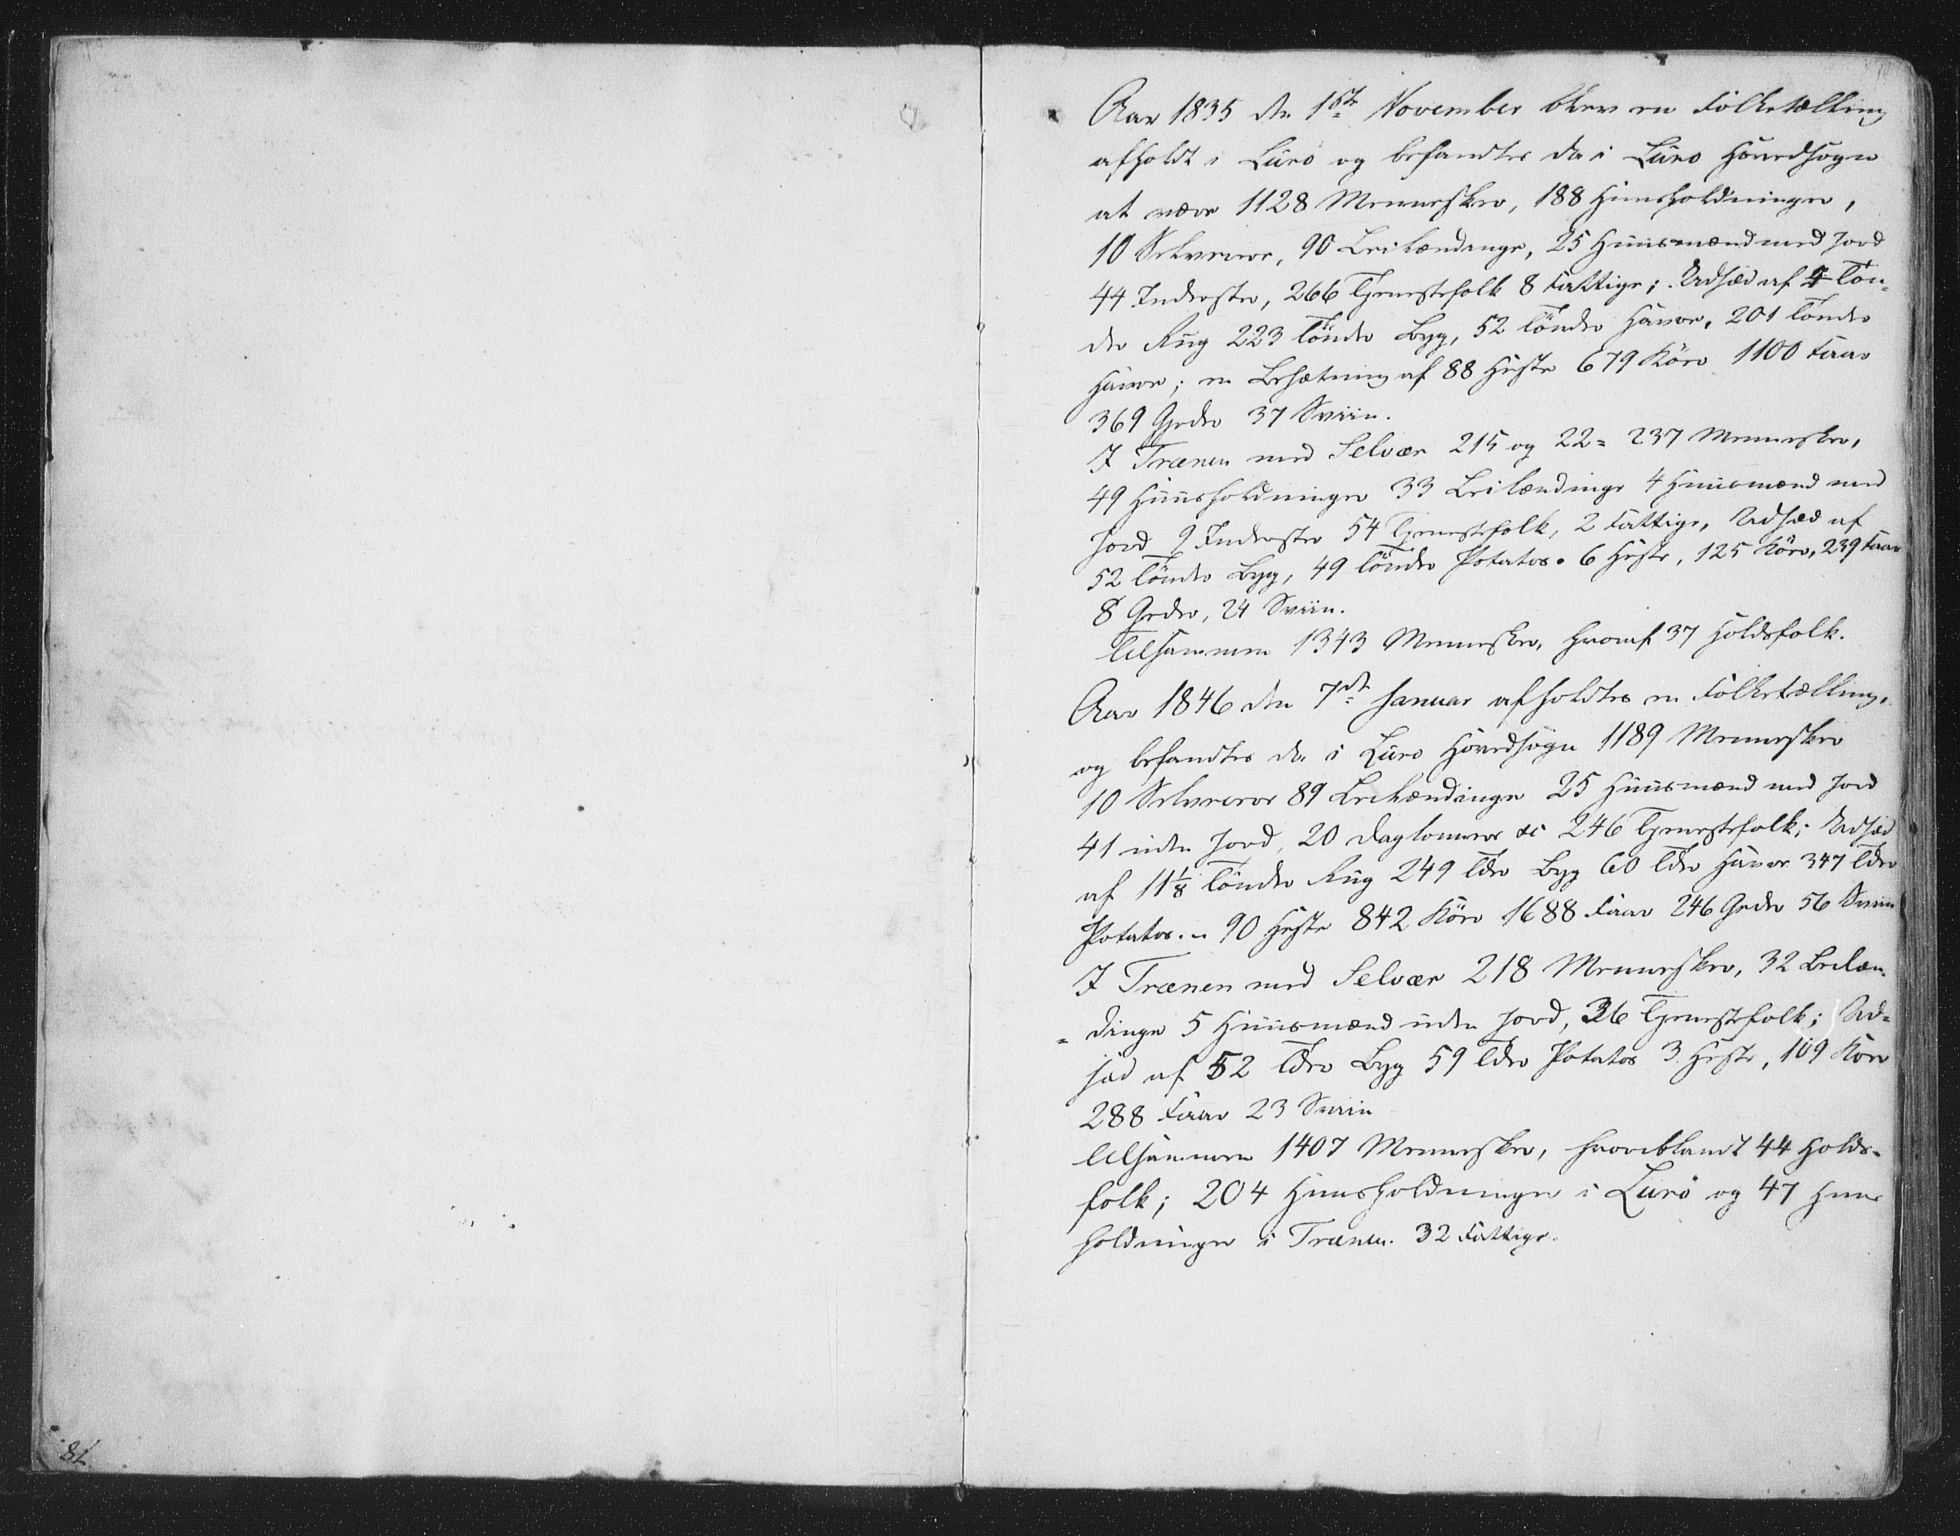 Aar 1835 den 1ste November blev en Folketælling
afholdt i Lurö og befandtes da i Lurö Hovedsogn
at være 1128 Mennesker, 188 Huusholdninger,
10 Selveiere, 90 Leilændinge, 25 Huusmænd med Jord
44 Inderster, 266 Tjenestefolk 8 Fattige; Udsæd af 4 Tön-
der Rug 223 Tönder Byg, 52 Tönder Havre, 201 Tönder
Havre; en Besætning af 88 Heste 679 Köer 1100 Faar
369 Geder 37 Sviin.
I Trænen med Selvær 215 og 22 = 237 Mennesker,
49 Huusholdninger 33 Leilændinge 4 Huusmænd med
Jord 9 Inderster 54 Tjenestefolk, 2 Fattige, Udsæd af
52 Tönder Byg, 49 Tönder Potatos. 6 Heste, 125 Köer, 239 Faar
8 Geder, 24 Sviin.
Tilsammen 1343 Mennesker, hvoraf 37 Holdsfolk.
Aar 1846 den 7de Januar afholdtes en Folketælling,
og befandtes da i Lurö Hovedsogn 1189 Mennesker
10 Selveiere 89 Leilændinge 25 Huusmænd med Jord
41 uden Jord, 20 Daglönnere 246 Tjenestefolk; Udsæd
af 11 1/8 Tönder Rug 249 Tdr Byg 60 Tdr Havre 347 Tdr
Potatos. - 90 Heste 842 Köer 1688 Faar 246 Geder 56 Sviin
I Trænen med Selvær 218 Mennesker, 32 Leilæn-
dinge 5 Huusmænd uden Jord, 36 Tjenestefolk; Ud-
sæd af 52 Tdr Byg 59 Tdr Potatos 3 Heste, 109 Köer
288 Faar 23 Sviin
Tilsammen 1407 Mennesker, hvoriblandt 44 Holds-
folk; 204 Huusholdninger i Lurö og 47 Huus
holdninger i Trænen. 32 Fattige.